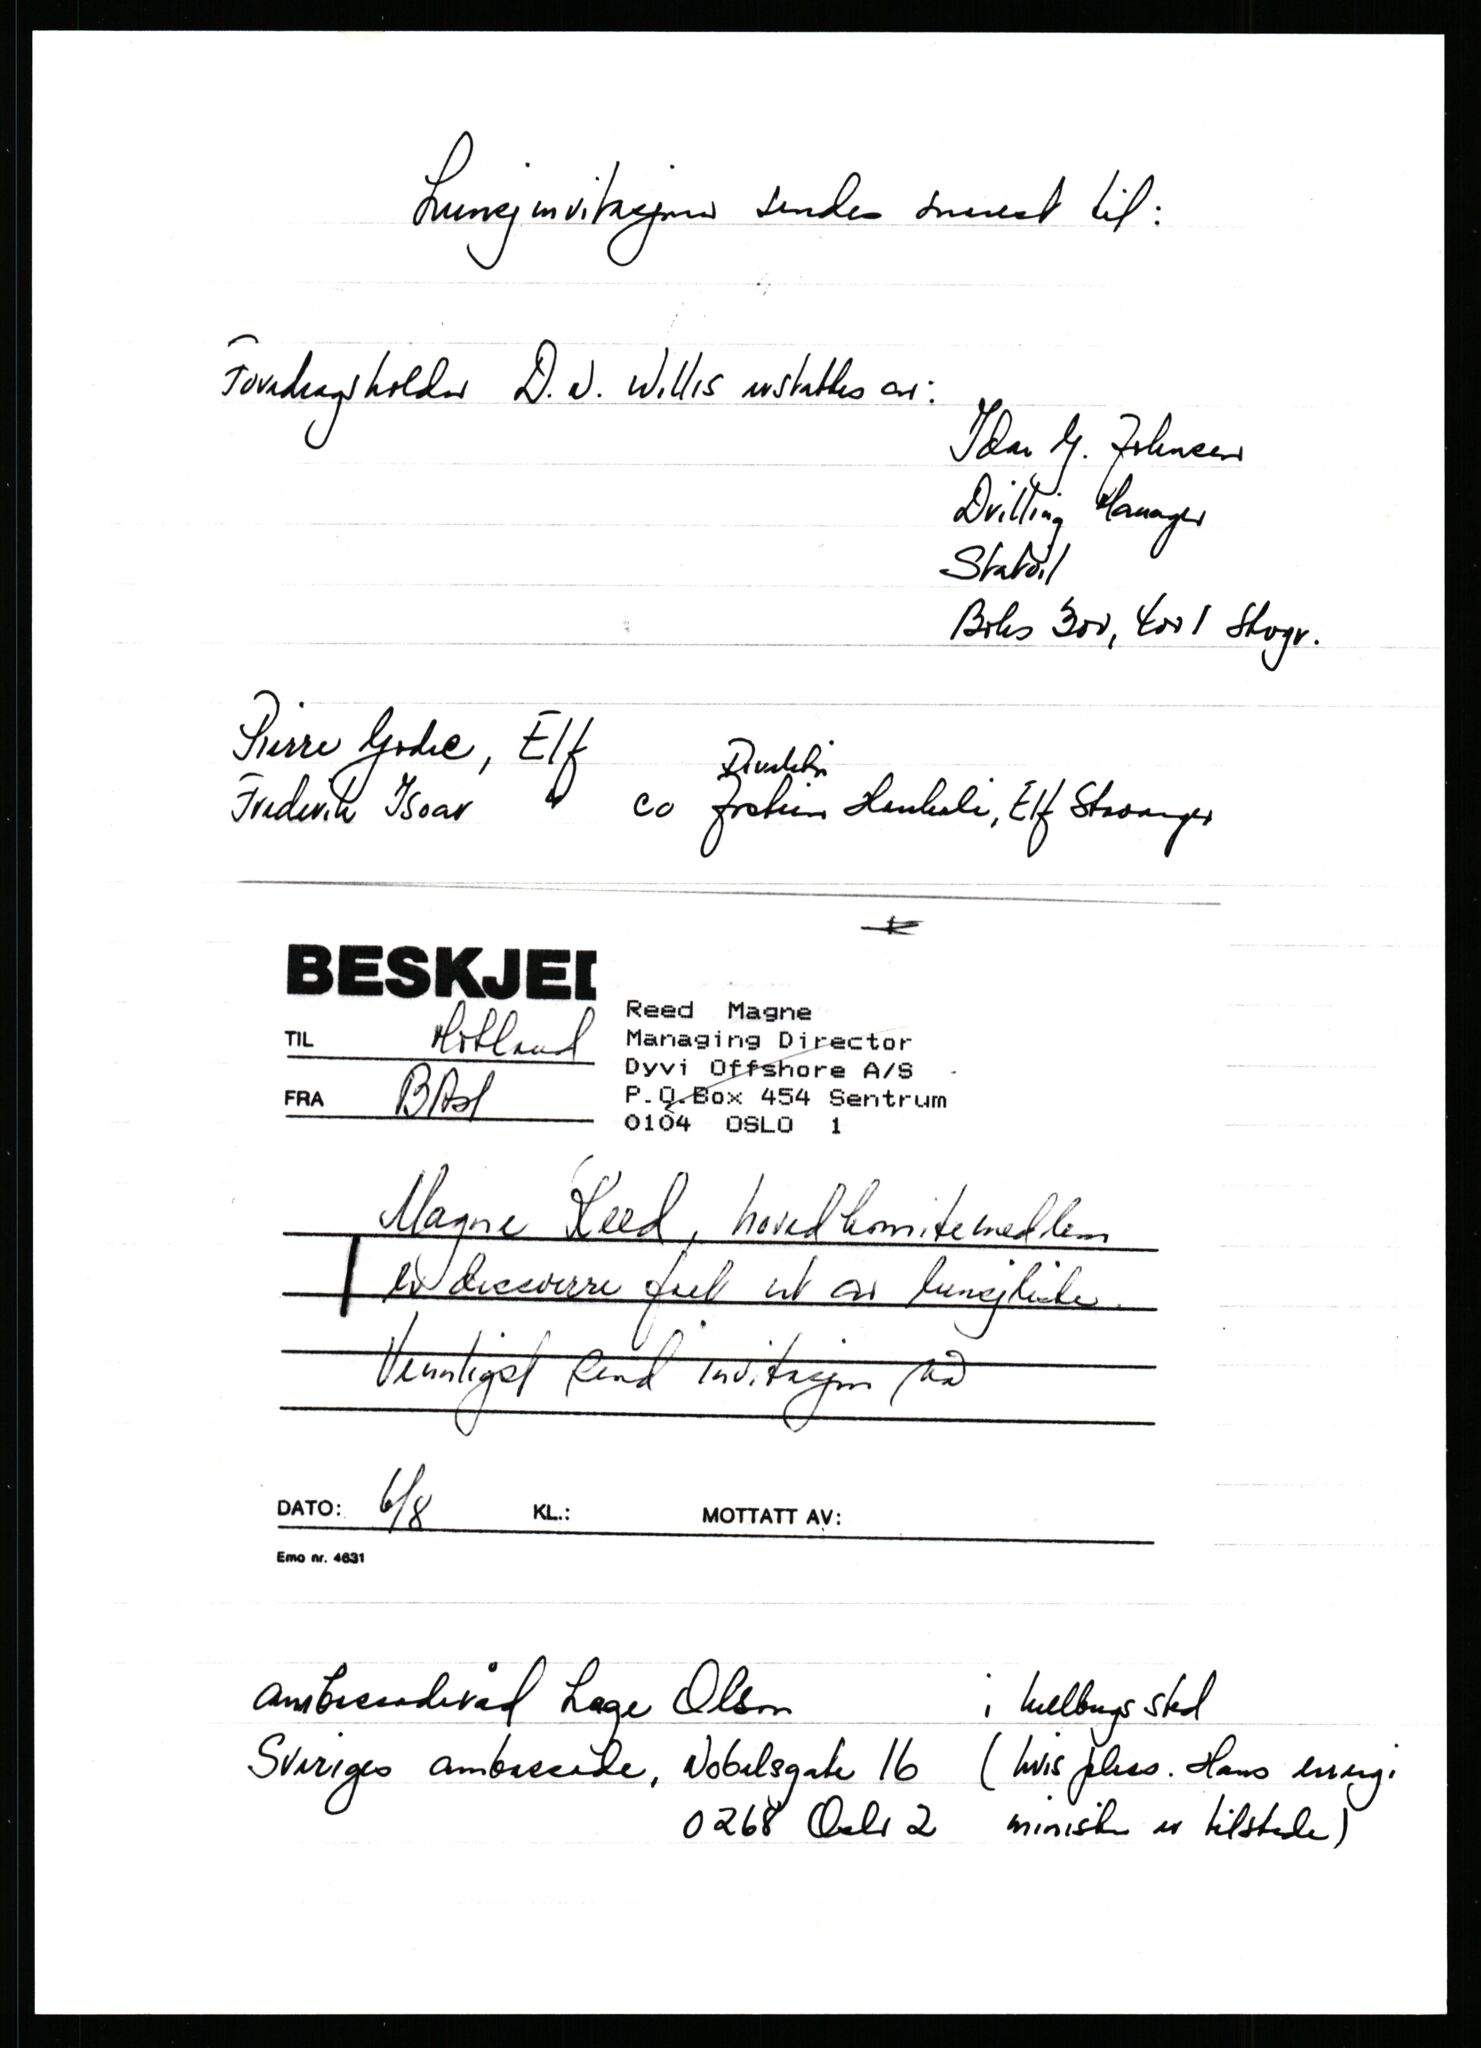 Lunsjinvitasjon sendes snarest til:
Foredragsholder D. N. Willis erstattes av:
Idar G. Johnsen
Drilling Manager
Statoil
Boks 300, 4001 Stvgr.
Pierre Godec, Elf
Frederik Isoar " co Torstein Hanheli, Elf Stavanger
BESKJED
Reed Magne
Managing Director
TIL
Dyvi Offshore A/S
FRA
P.O.Box 454 Sentrum
0104 OSLO 1
Magne Reed, hovedkomitemedlem
er dessverre falt ut av lunsjliste.
Vennligst send invitasjon nå
DATO: 6/8 KL.: MOTTATT AV:
Emo nr. 4631
Ambassaderåd Lage Olson i sted
Sveriges ambassade, Nobelsgate 16 (hvis plass. Hans energi
0268 Oslo 2 minister er tilstede)